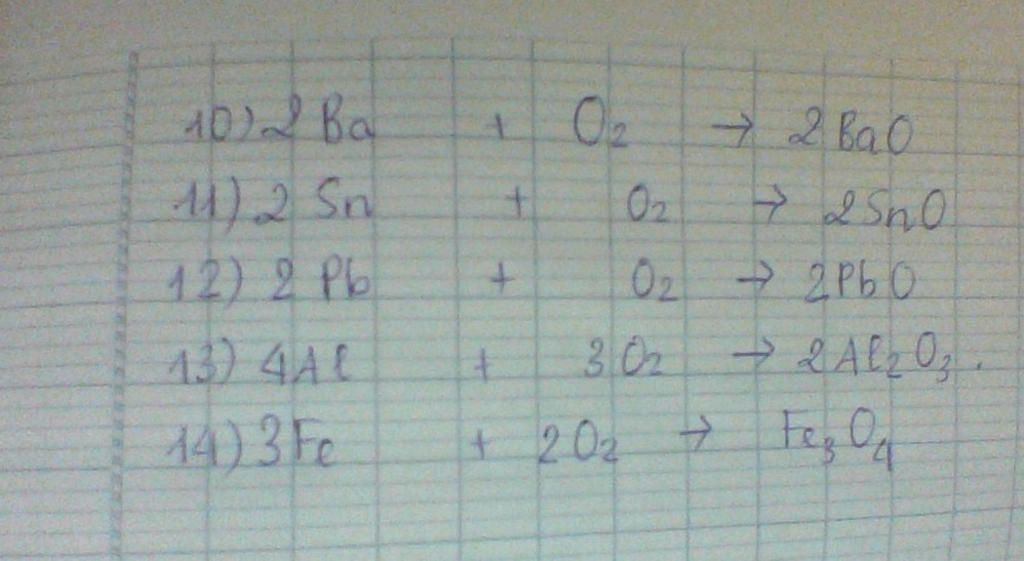 10) 2 Ba + O₂ → 2BaO
11) 2 Sn + O₂ → 2SnO
12) 2 Pb + O₂ → 2PbO
13) 4Al + 3O₂ → 2Al₂O₃.
14) 3Fe + 2O₂ → Fe₃O₄